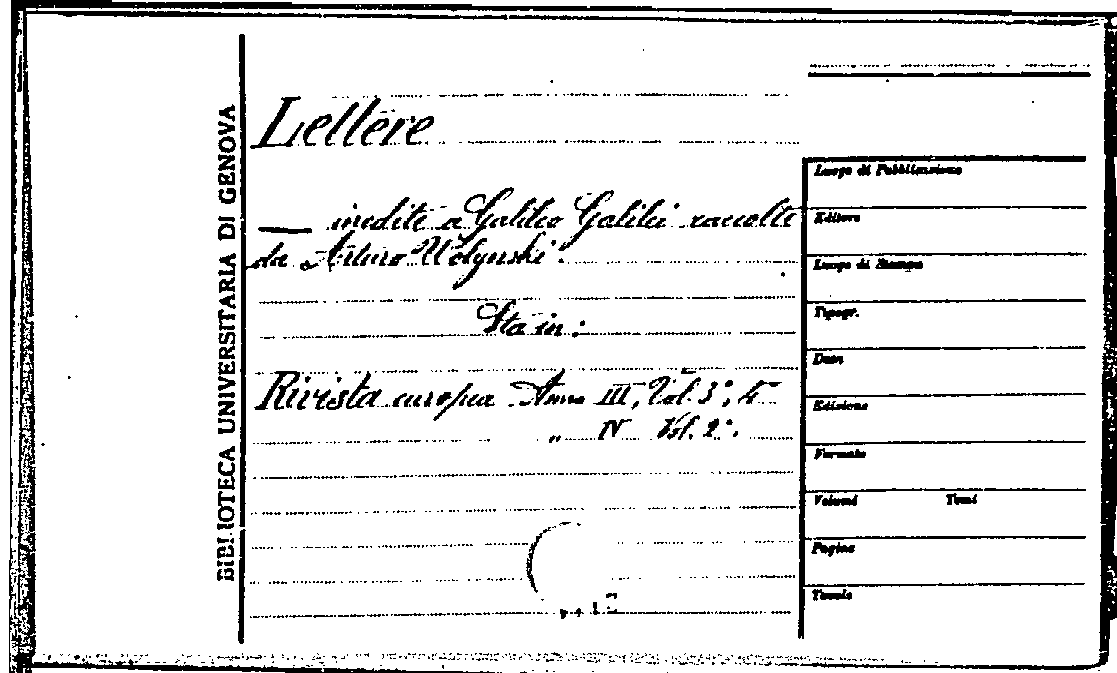 BIBLIOTECA UNIVERSITARIA DI GENOVA
Lettere
— inedite a Galileo Galilei raccolte
da Arturo Wolynski.
Sta in:
Rivista europea Anno III, Vol. 3°; 4°
„ IV Vol. 2°.
Luogo di Pubblicazione
Editore
Luogo di Stampa
Tipogr.
Data
Edizione
Formato
Volumi Tomi
Pagine
Tavole